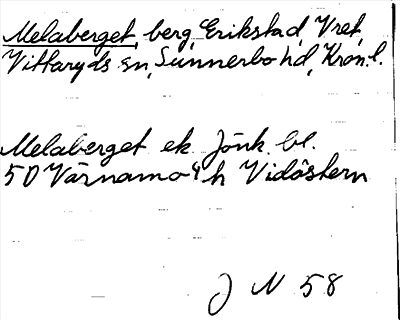 Melaberget, berg, Erikstad, Vret,
Vittaryds sn, Sunnerbo hd, Kron. l.
Melaberget ek. Jönk. bl.
5D Värnamo 4 h Vidöstern
J N 58